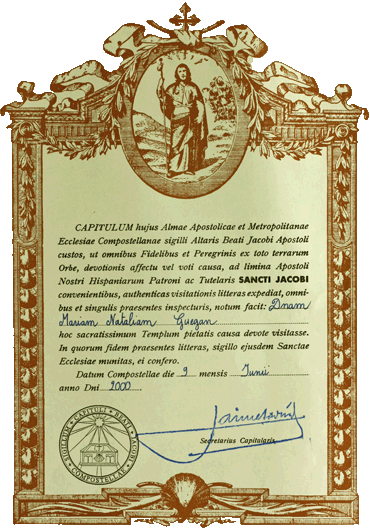 CAPITULUM hujus Almae Apostolicae et Metropolitanae
Ecclesiae Compostellanae sigilli Altaris Beati Jacobi Apostoli
custos, ut omnibus Fidelibus et Peregrinis ex toto terrarum
Orbe, devotionis affectu vel voti causa, ad limina Apostoli
Nostri Hispaniarum Patroni ac Tutelaris SANCTI JACOBI
convenientibus, authenticas visitationis litteras expediat, omni-
bus et singulis praesentes inspecturis, notum facit: Dnam
Mariam Nataliam Guegan
hoc sacratissimum Templum pietatis causa devote visitasse.
In quorum fidem praesentes litteras, sigillo ejusdem Sanctae
Ecclesiae munitas, ei confero.
Datum Compostellae die 9 mensis Junii
anno Dni 2000
Secretarius Capitularis
SIGILLUM CAPITULI BEATI JACOBI COMPOSTELLAE